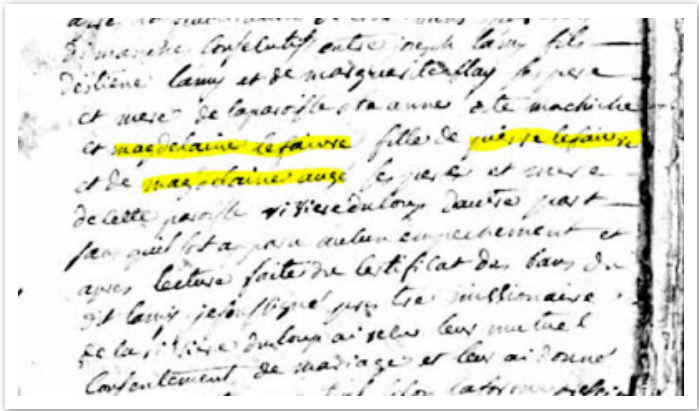 dimanche Consecutif entre joseph lamy fils
d'estiene lamy et de marguerite allay ses pere
et mere de la paroisse ste anne machiche
et magdelaine lefaivre fille de pierre lefaivre
et de magdelaine auge ses peres et mere
de cette paroisse riviere du loup dautre part
sans quil sot apara aucun empechement et
apres lecture faite du certificat des bans du
dit lamy je soussigné pres tre missionaire
de la riviere du loup ai recu leur mutuel
Consentement de mariage et leur ai donné
la forme